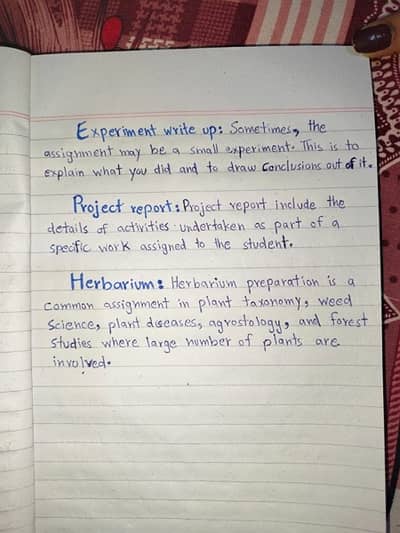 Experiment write up: Sometimes, the
assignment may be a small experiment. This is to
explain what you did and to draw Conclusions out of it.
Project report: Project report include the
details of activities undertaken as part of a
specific work assigned to the student.
Herbarium: Herbarium preparation is a
common assignment in plant taxonomy, weed
science, plant diseases, agrostology, and forest
studies where large number of plants are
involved.